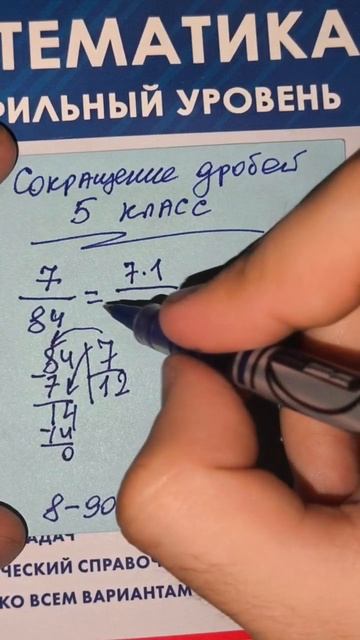 ТЕМАТИКА
РИЛЬНЫЙ УРОВЕНЬ
Сокращение дробей
5 класс
7/84 = 7·1
84 | 7
7 | 12
14
14
0
8-90
АДАЧ
ЧЕСКИЙ СПРАВОЧ
КО ВСЕМ ВАРИАНТАМ